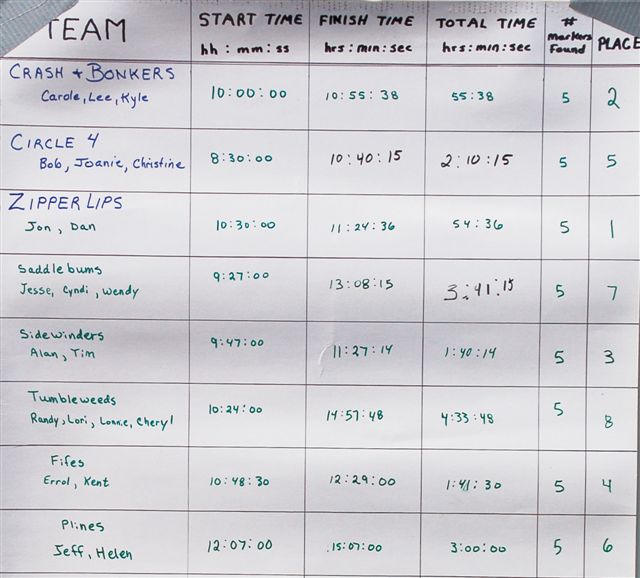 TEAM START TIME FINISH TIME TOTAL TIME # markers Found PLACE
hh : mm : ss hrs : min : sec hrs : min : sec
CRASH + BONKERS
Carole, Lee, Kyle 10:00:00 10:55:38 55:38 5 2
CIRCLE 4
Bob, Joanie, Christine 8:30:00 10:40:15 2:10:15 5 5
ZIPPER LIPS
Jon, Dan 10:30:00 11:24:36 54:36 5 1
Saddlebums
Jesse, Cyndi, Wendy 9:27:00 13:08:15 3:41:15 5 7
Sidewinders
Alan, Tim 9:47:00 11:27:14 1:40:14 5 3
Tumbleweeds
Randy, Lori, Lonnie, Cheryl 10:24:00 14:57:48 4:33:48 5 8
Fifes
Errol, Kent 10:48:30 12:29:00 1:41:30 5 4
Plines
Jeff, Helen 12:07:00 15:07:00 3:00:00 5 6